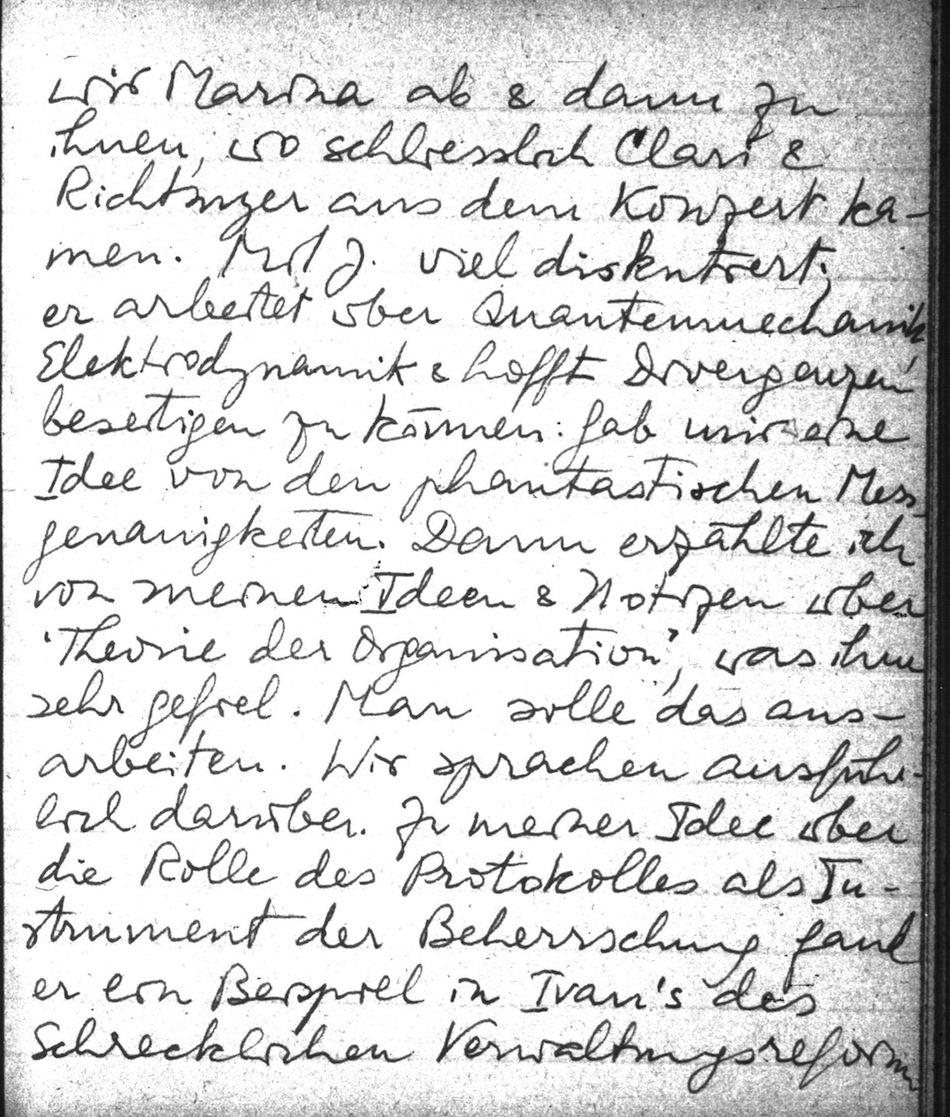 wir Marina ab & dann zu
ihnen, wo schliesslich Clari &
Richtinger aus dem Konzert ka-
men. Mit J. viel diskutiert;
er arbeitet über Quantenmechanik,
Elektrodynamik & hofft Divergenzen
beseitigen zu können: gab mir eine
Idee von den phantastischen Mess-
genauigkeiten. Dann erzählte ich
von meinen Ideen & Notizen über
'Theorie der Organisation', was ihm
sehr gefiel. Man solle das aus-
arbeiten. Wir sprachen ausführ-
lich darüber. Zu meiner Idee über
die Rolle des Protokolles als In-
strument der Beherrschung fand
er ein Beispiel in Ivan's des
Schrecklichen Verwaltungsreform